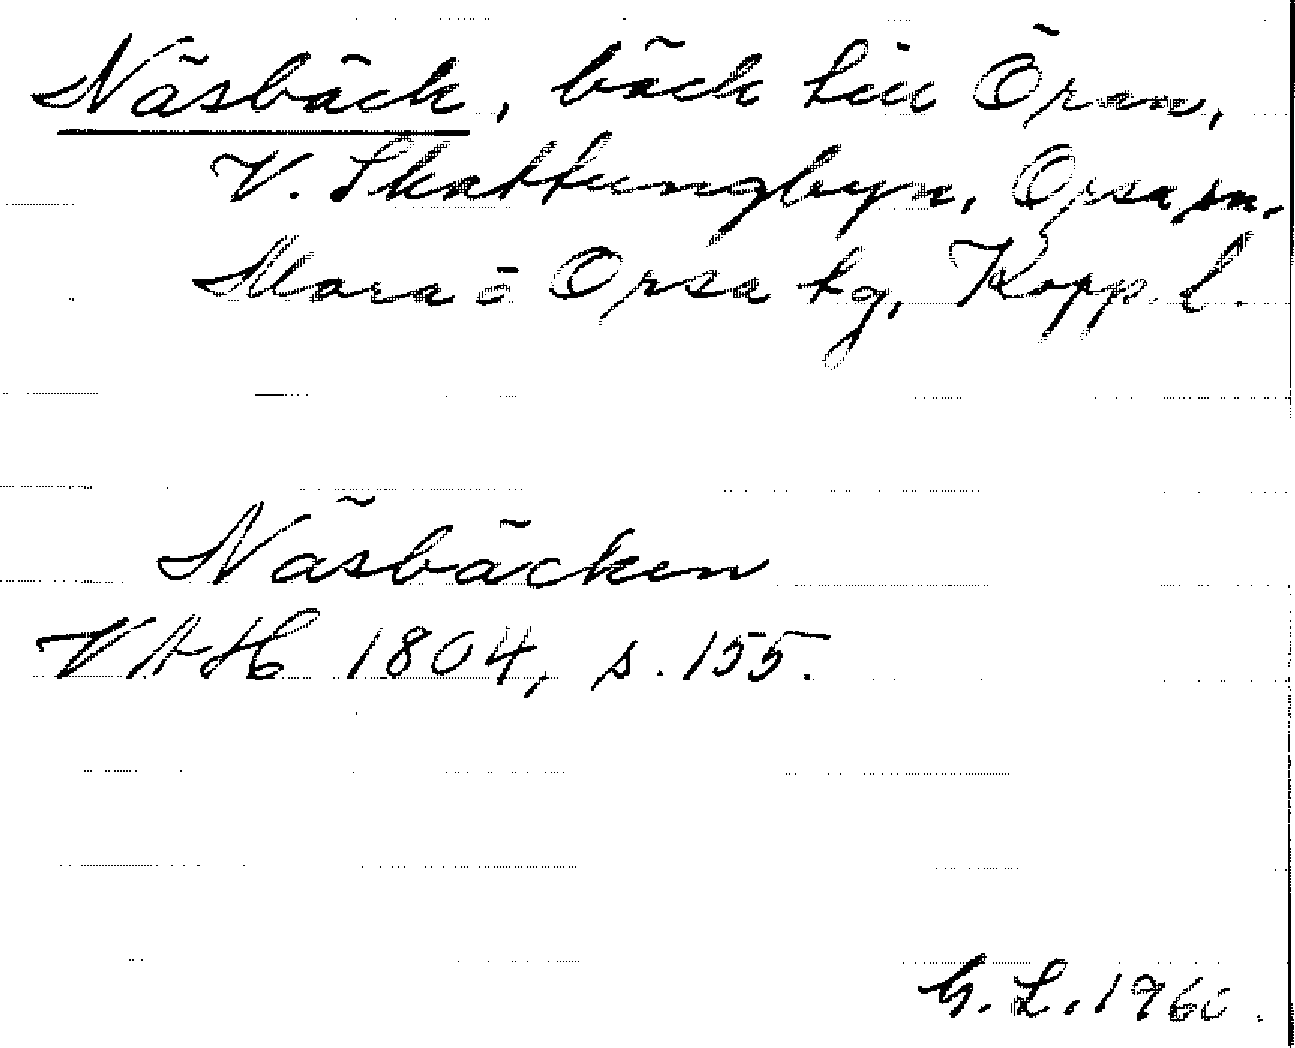 Näsbäck, bäck till Öran,
V. Skattungbyn, Orsa sn.
Mora o Orsa tg, Kopp. l.
Näsbäcken
VAH 1804, s. 155.
G. L. 1960.